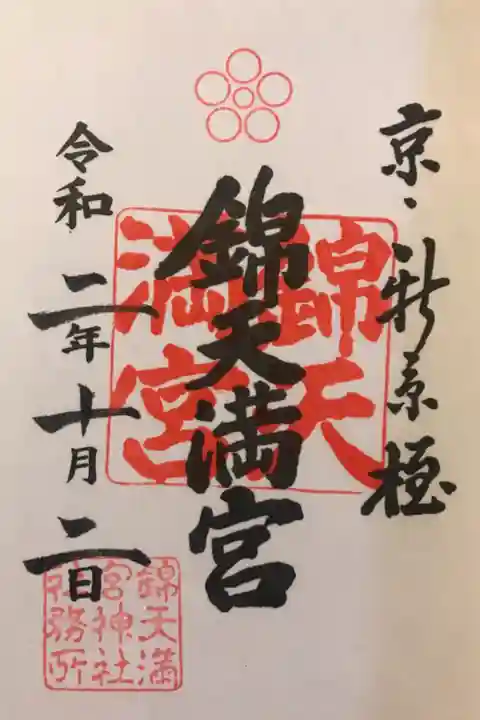 京・新京極
錦天満宮
錦天
満宮
令和二年十月二日
錦天満
宮神社
社務所